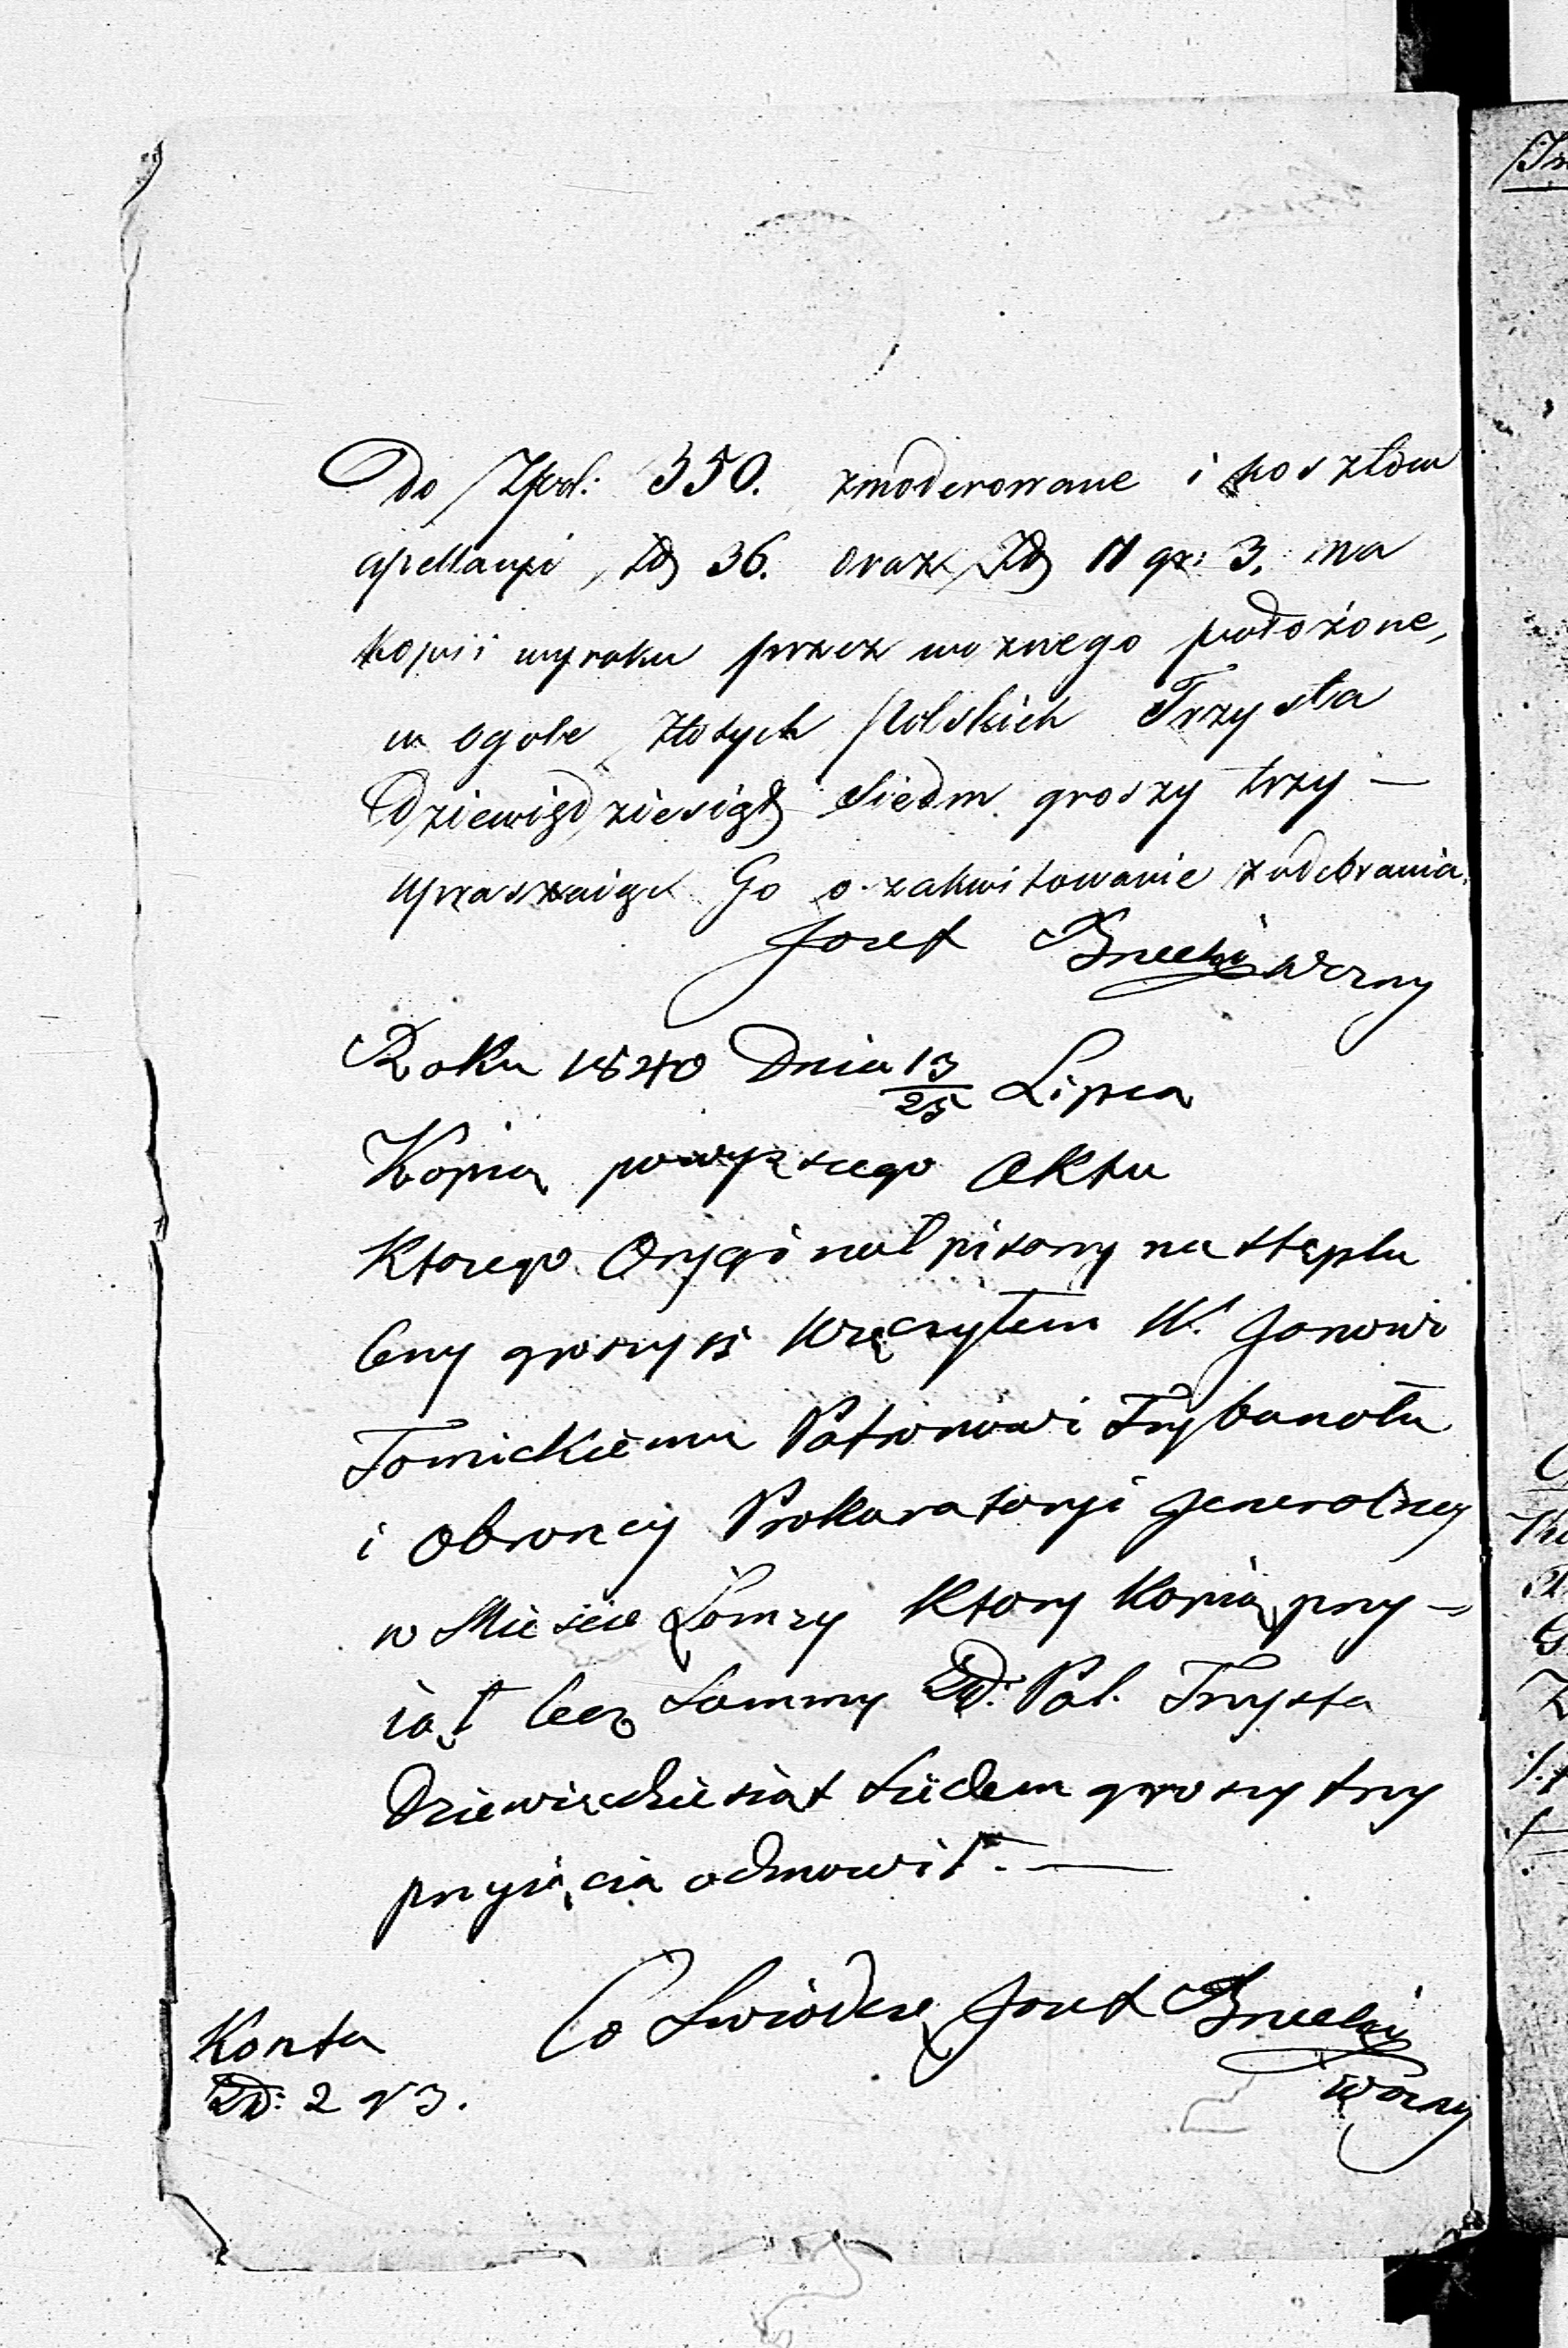 Do Zpol: 350. zmoderowane i kosztow
apellacyi, Zł 36. oraz Zł 11 gr: 3. na
kopii wyroku przez woznego położone,
w ogole złotych Polskich Trzysta
Dziewięćdziesiąt Siedm groszy trzy —
upraszaiąc Go o zakwitowanie z odebrania.
Jozef Wozny
Roku 1840 Dnia 13/25 Lipca
Kopią powyzszego Aktu
Ktorego Orygi nał pisany na stęplu
Ceny groszy wręczyłem W. Janowi
Tomickiemu Patronowi Trybunału
i Obroncy Prokuratoryi Jeneralney
w Miescie Łomzy Ktory Kopią przy-
iął lecz Sammy Zł: Pol. Trzysta
Dziewięcdziesiąt Siedem groszy trzy
przyięcia odmowił. —
Co Swiadczę Jozef
Wozny
Koszta
Zł: 2 gr 3.